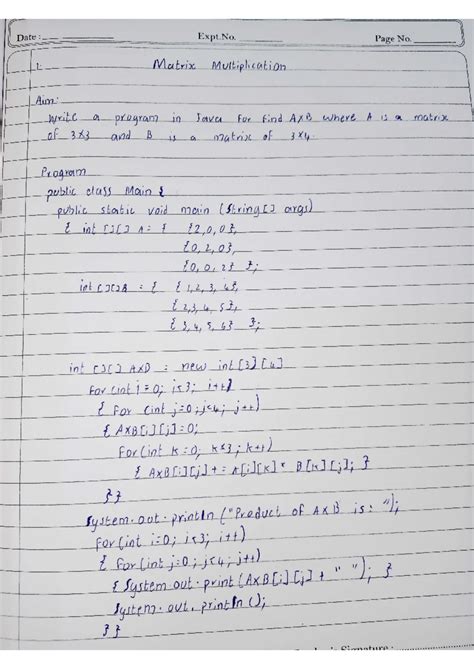 Date :
Expt.No.
Page No.
1.
Matrix Multiplication
Aim:
Write a program in Java for find AXB where A is a matrix
of 3X3 and B is a matrix of 3X4.
Program
public class Main {
public static void main (String[] args)
{ int [][] A = { {2,0,0},
{0,2,0},
{0,0,2} };
int [][] B = { {1,2,3,4},
{2,3,4,5},
{3,4,5,6} };
int [][] AXB = new int[3][4]
for (int i=0; i<3; i++)
{ for (int j=0; j<4; j++)
{ AXB[i][j]=0;
for(int k=0; k<3; k++)
{ AXB[i][j]+= A[i][k]* B[k][j]; }
}}
System.out.println ("Product of AXB is: ");
for(int i=0; i<3; i++)
{ for (int j=0; j<4; j++)
{ System.out.print (AXB[i][j] + " "); }
System.out.println ();
}}
Signature :